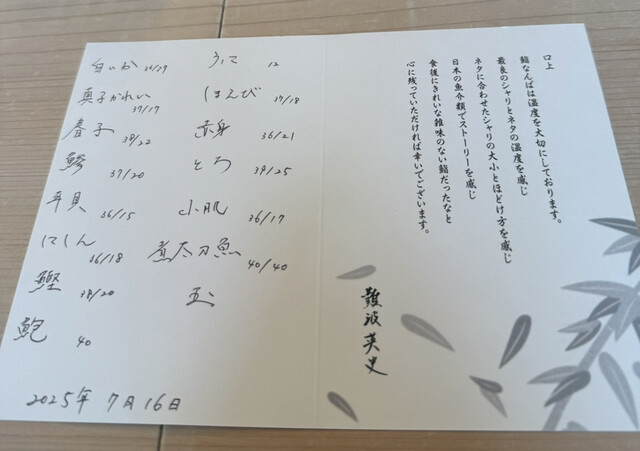 白いか 36/19
真子かれい 37/17
春子 38/22
鯵 37/20
平貝 36/15
にしん 36/18
鰹 38/20
鮑 40
うに 12
37/18
赤身 36/21
とろ 39/25
小肌 36/17
煮太刀魚 40/40
玉
2025年 7月16日
口上
鮨なんばは温度を大切にしております。
最良のシャリとネタの温度を感じ
ネタに合わせたシャリの大小とほどけ方を感じ
日本の魚介類でストーリーを感じ
食後にきれいな雑味のない鮨だったなと
心に残っていただければ幸いでございます。
難波英史